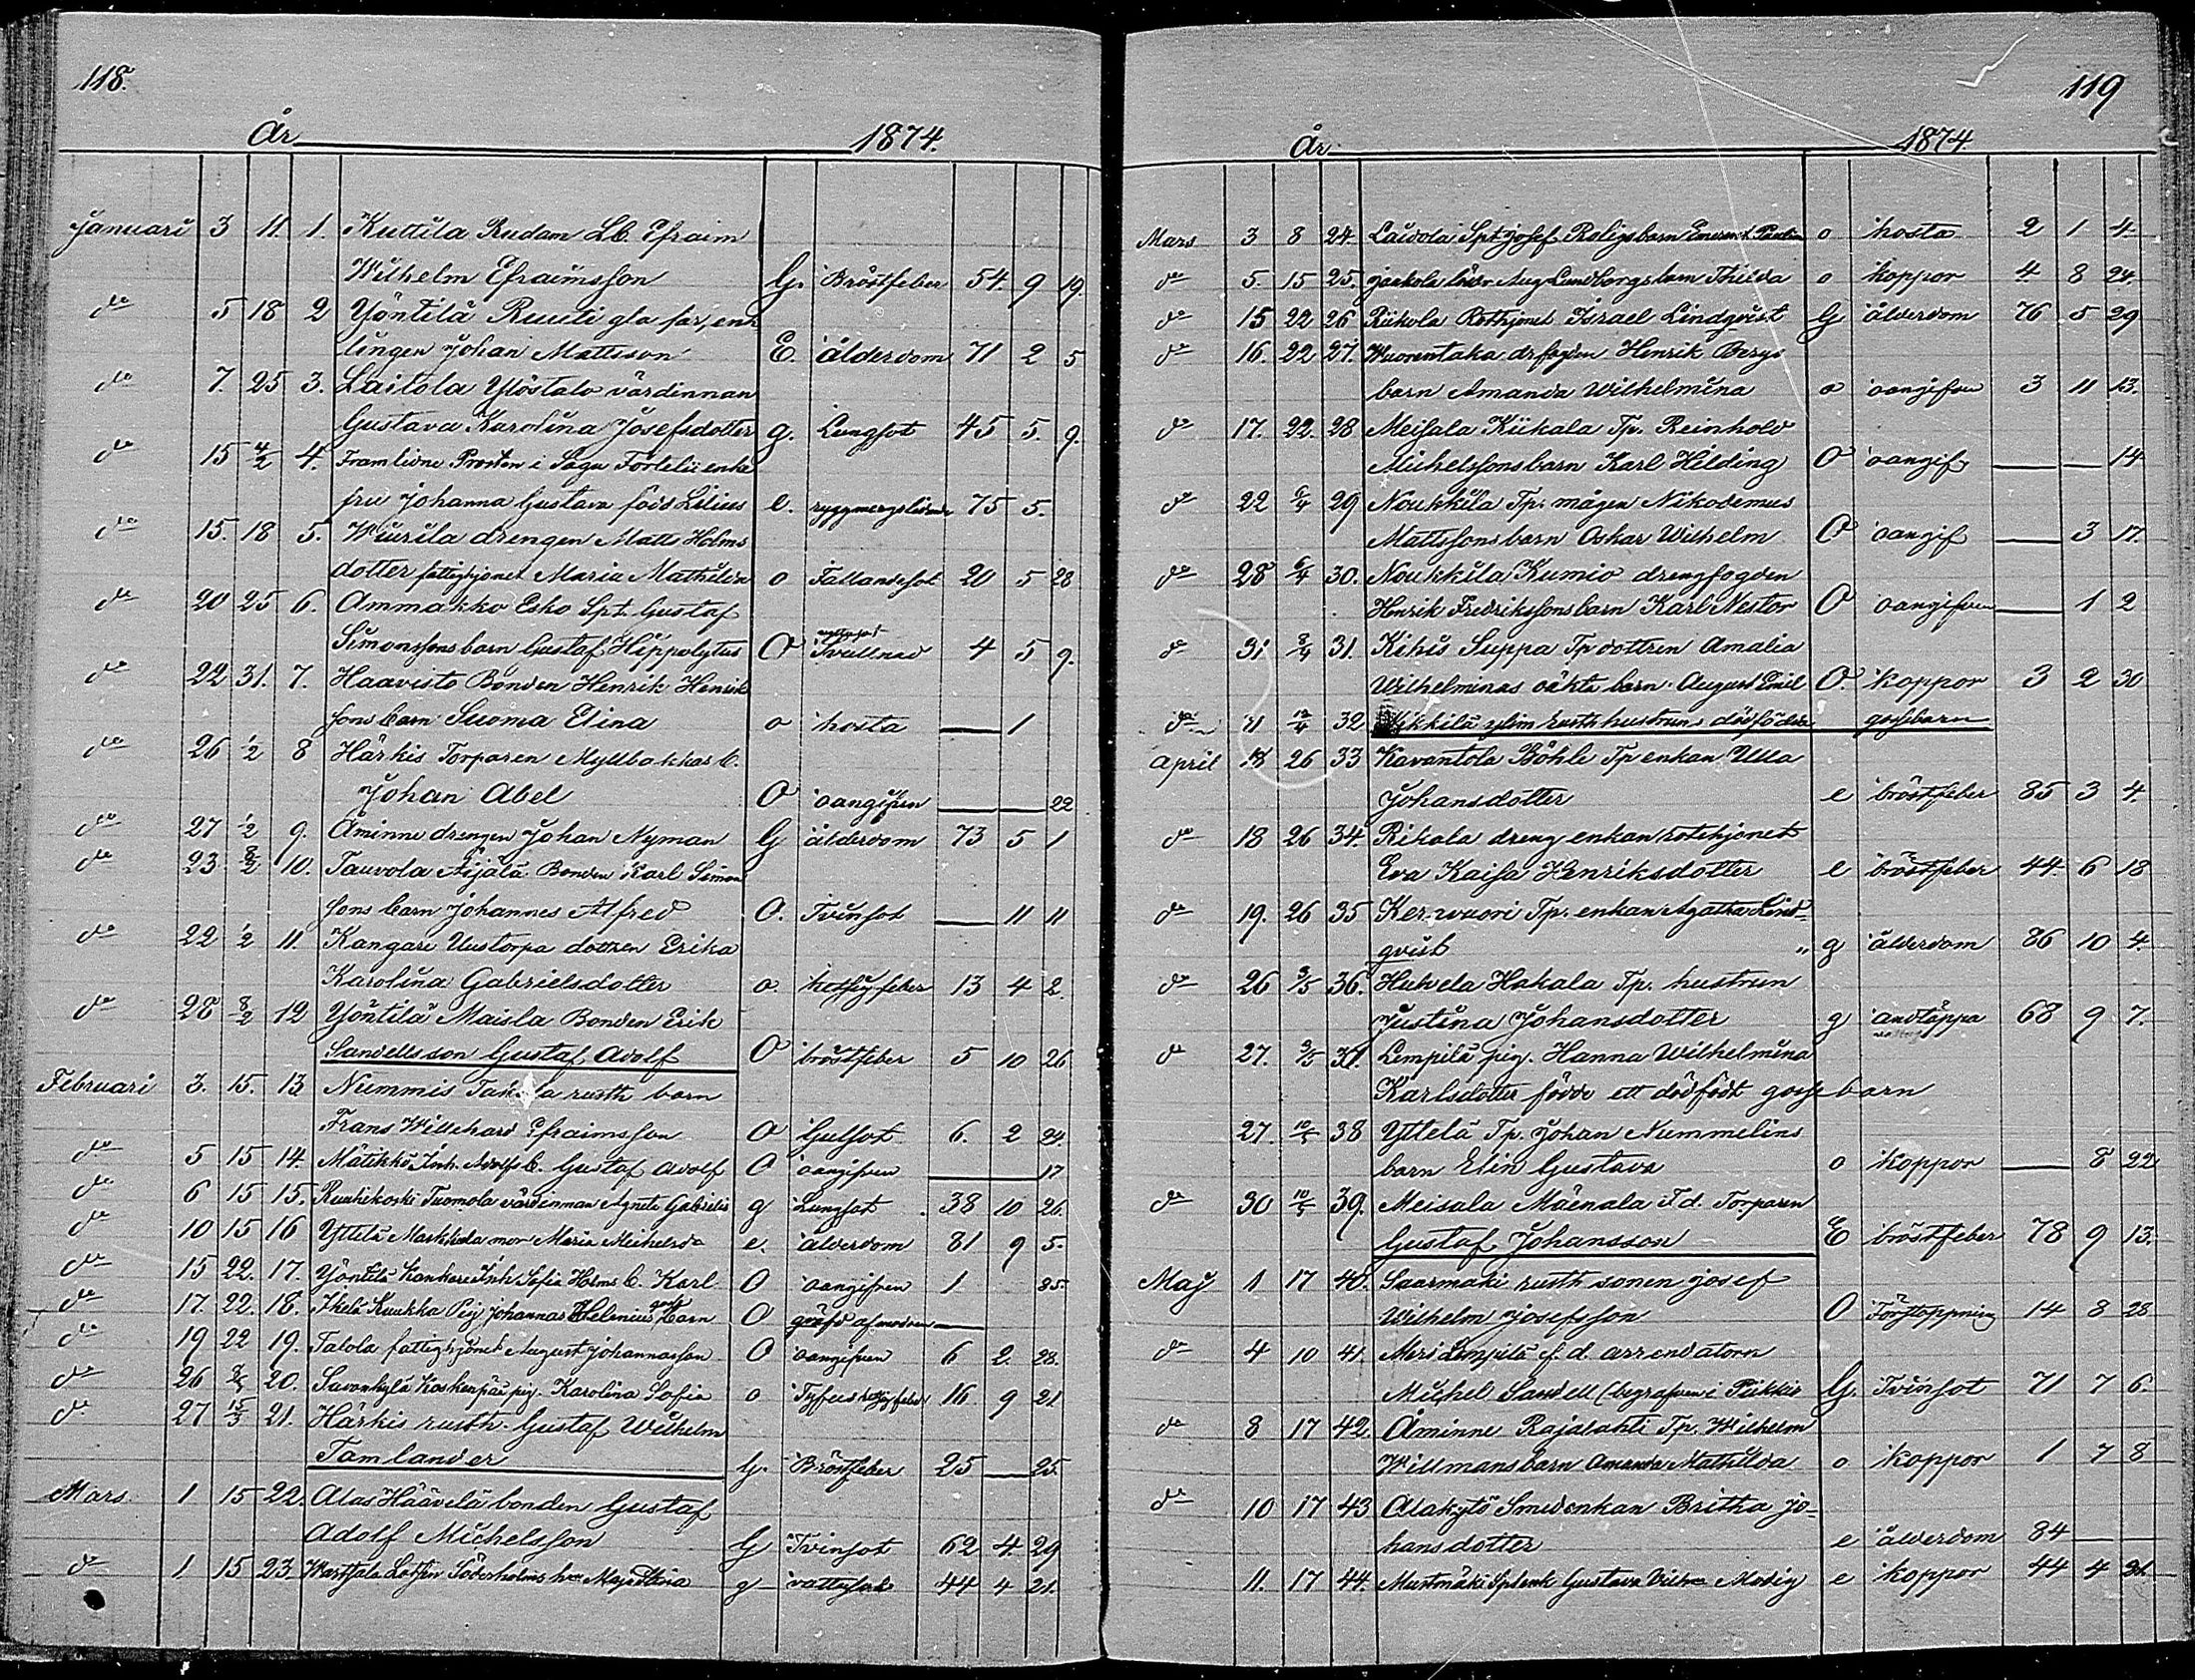 118.
År 1874.
Januari 3 11. 1. Kuttila Rudam Lb. Efraim
Wilhelm Efraimsson G. Bröstfeber 54. 9 19.
do 5 18 2 Yöntilä Ruuti gla far, enk
lingen Johan Mattsson E. ålderdom 71 2 5
do 7. 25 3. Laitola Ylöstalo värdinnan
Gustava Karolina Josefsdotter g. Lungsot 45 5. 9.
do 15 4/2 4. Framlidne Prosten i Sagu enke
fru Johanna Gustava född Lilius e. ryggmergslidande 75 5.
do 15. 18 5. Wiurila drengen Matts Holms
dotter fattighjonet Maria Mathilda o Fallandesot 20 5 28
do 20 25 6. Ammakko Esko Spt. Gustaf
Simonssons barn Gustaf Hippolytus O Svullnad 4 5 9.
do 22 31. 7. Haavisto Bonden Henrik Henrik
sons barn Suoma Elina o hosta — 1
do 26 1/2 8 Härkis Torparen Myllbackas b.
Johan Abel O oangifven — — 22
do 27 1/2 9. Åminne drengen Johan Nyman G ålderdom 73 5 1
do 23 8/2 10. Tauvola Äijälä Bonden Karl Simon
sons barn Johannes Alfred O. Tvinsot — 11 11
do 22 1/2 11. Kangare Uustorpa dottren Erika
Karolina Gabrielsdotter o. hetsig feber 13 4 2.
do 28 8/2 12 Yöntilä Maisla Bonden Erik
Sandells son Gustaf Adolf O bröstfeber 5 10 26
Februari 3. 15. 13 Nummis rusth barn
Frans Willehard Efraimsson O Gulsot 6. 2 24.
do 5 15 14. Mätikkö Inh. Adolfs b. Gustaf Adolf O oangifven — — 17
do 6 15 15. Ruuhikoski Tuomola värdinnan Agneta Gabriels g Lungsot 38 10 26.
do 10 15 16 Yttelä Markkula mor Maria Michelsd. e. ålderdom 81 9 5.
do 15 22. 17. Yöntilä Kankare Inh Sofia Holms b. Karl O oangifven 1 25.
do 17. 22. 18. Ihelä Kuukka Pig. Johannas Helenius barn O qväfd af modren —
do 19 22 19. Talola fattighjonet August Johannasson O oangifven 6 2. 28.
do 26 20. Savonkylä Koskenpää pig. Karolina Sofia o Tyfeus hetsig feber 16 9 21
do 27 15/3 21. Härkis rusth. Gustaf Wilhelm
Tamlander G. Bröstfeber 25 — 25.
Mars 1 15 22. Alas Häävelä bonden Gustaf
Adolf Michelsson G Tvinsot 62 4. 29
do 1 15 23. Wartsala Lotsen Söderholms h:u Maja Stina g vattusot 44 4 21.
119
År 1874.
Mars 3 8 24. Laidola Spt Josef Roligs barn o hosta 2 1 4
do 5. 15 25. Aug Lundborgs barn Thilda o koppor 4. 8 24.
do 15 22 26 Riikola Rothjonet Israel Lindqvist G ålderdom 76 5 29
do 16. 22 27. Wuorentaka drfogden Henrik Bergs
barn Amanda Wilhelmina o oangifven 3 11 13.
do 17. 22. 28 Meisala Kiikala Tp. Reinhold
Michelssons barn Karl Hilding O oangif. — — 14
do 22 6/4 29 Noukkila Tp. mågen Nikodemus
Mattssons barn Oskar Wilhelm O oangif — 3 17.
do 28 6/4 30. Noukkila Kumio drengfogden
Henrik Fredrikssons barn Karl Nestor O oangifven — 1 2
do 31 8/4 31. Kihis Suppa Tp dottren Amalia
Wilhelminas oäkta barn August Emil O. koppor 3 2 30
do 11 12/4 32 rusth hustruns dödfödda gossebarn
April 18 26 33 Kavantola Böhle Tp enkan Ulla
Johansdotter e bröstfeber 85 3 4.
do 18 26 34. Rikala dreng enkan rotehjonet
Eva Kaisa Henriksdotter e bröstfeber 44 6 18
do 19. 26 35 Ker-wuori Tp. enkan Agatha Lind-
qvist " g ålderdom 86 10 4.
do 26 3/5 36. Huhela Hakala Tp. hustrun
Justina Johansdotter g andtäppa 68 9 7.
do 27. 3/5 37. Lempilä pig. Hanna Wilhelmina
Karlsdotter födde ett dödfödt gossebarn
27. 10/5 38 Yttelä Tp. Johan Nummelins
barn Elin Gustava o koppor — 8 22
do 30 10/5 39. Meisala Mäenala F.d. Torparen
Gustaf Johansson E bröstfeber 78 9 13.
Maj 1 17 40. Saarmäki rusth sonen Josef
Wilhelm Josefsson O Förstoppning 14 8 28
do 4 10 41. Meri Lempilä f.d. arrendatorn
Michel Sandell (begrafven i Pükkis G. Tvinsot 71 7 6.
do 8 17 42. Åminne Rajalahti Tp. Wilhelm
Willmans barn Amanda Mathilda o koppor 1 7 8
do 10 17 43 Alakytö Smedenkan Britha Jo-
hansdotter e ålderdom 84 —
11. 17 44. Mustmäki Sp.enk Gustava Vilh:a Modig e koppor 44 4 21.